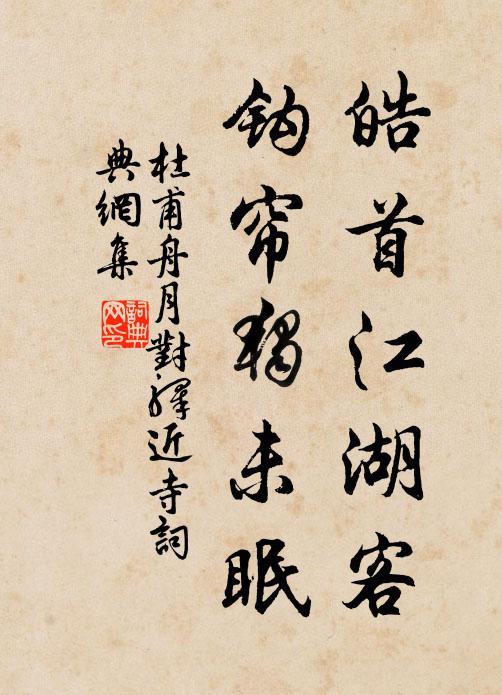 皓首江湖客
钩帘独未眠
杜甫舟月對驛近寺詞
典網集
詞典网印